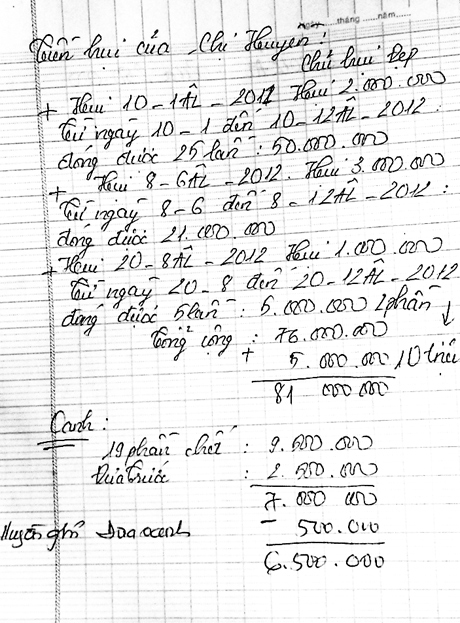 Ngày ...... tháng ...... năm......
Tiền hụi của Chị Huyền
Chủ hụi Đẹp
+ Hụi 10-1ÂL-2011 Hụi 2.000.000
Từ ngày 10-1 đến 10-12ÂL-2012:
đóng được 25 lần: 50.000.000
+ Hụi 8-6ÂL-2012. Hụi 3.000.000
Từ ngày 8-6 đến 8-12ÂL-2012:
đóng được 21.000.000
+ Hụi 20-8ÂL-2012 Hụi 1.000.000
Từ ngày 20-8 đến 20-12ÂL-2012
đóng được 5 lần: 5.000.000 2phần
Tổng cộng: 76.000.000
+ 5.000.000 10 triệu
81 000 000
Canh:
19 phần chết: 9.500.000
Đưa trước: 2.500.000
7.000 000
- 500.000
6.500.000